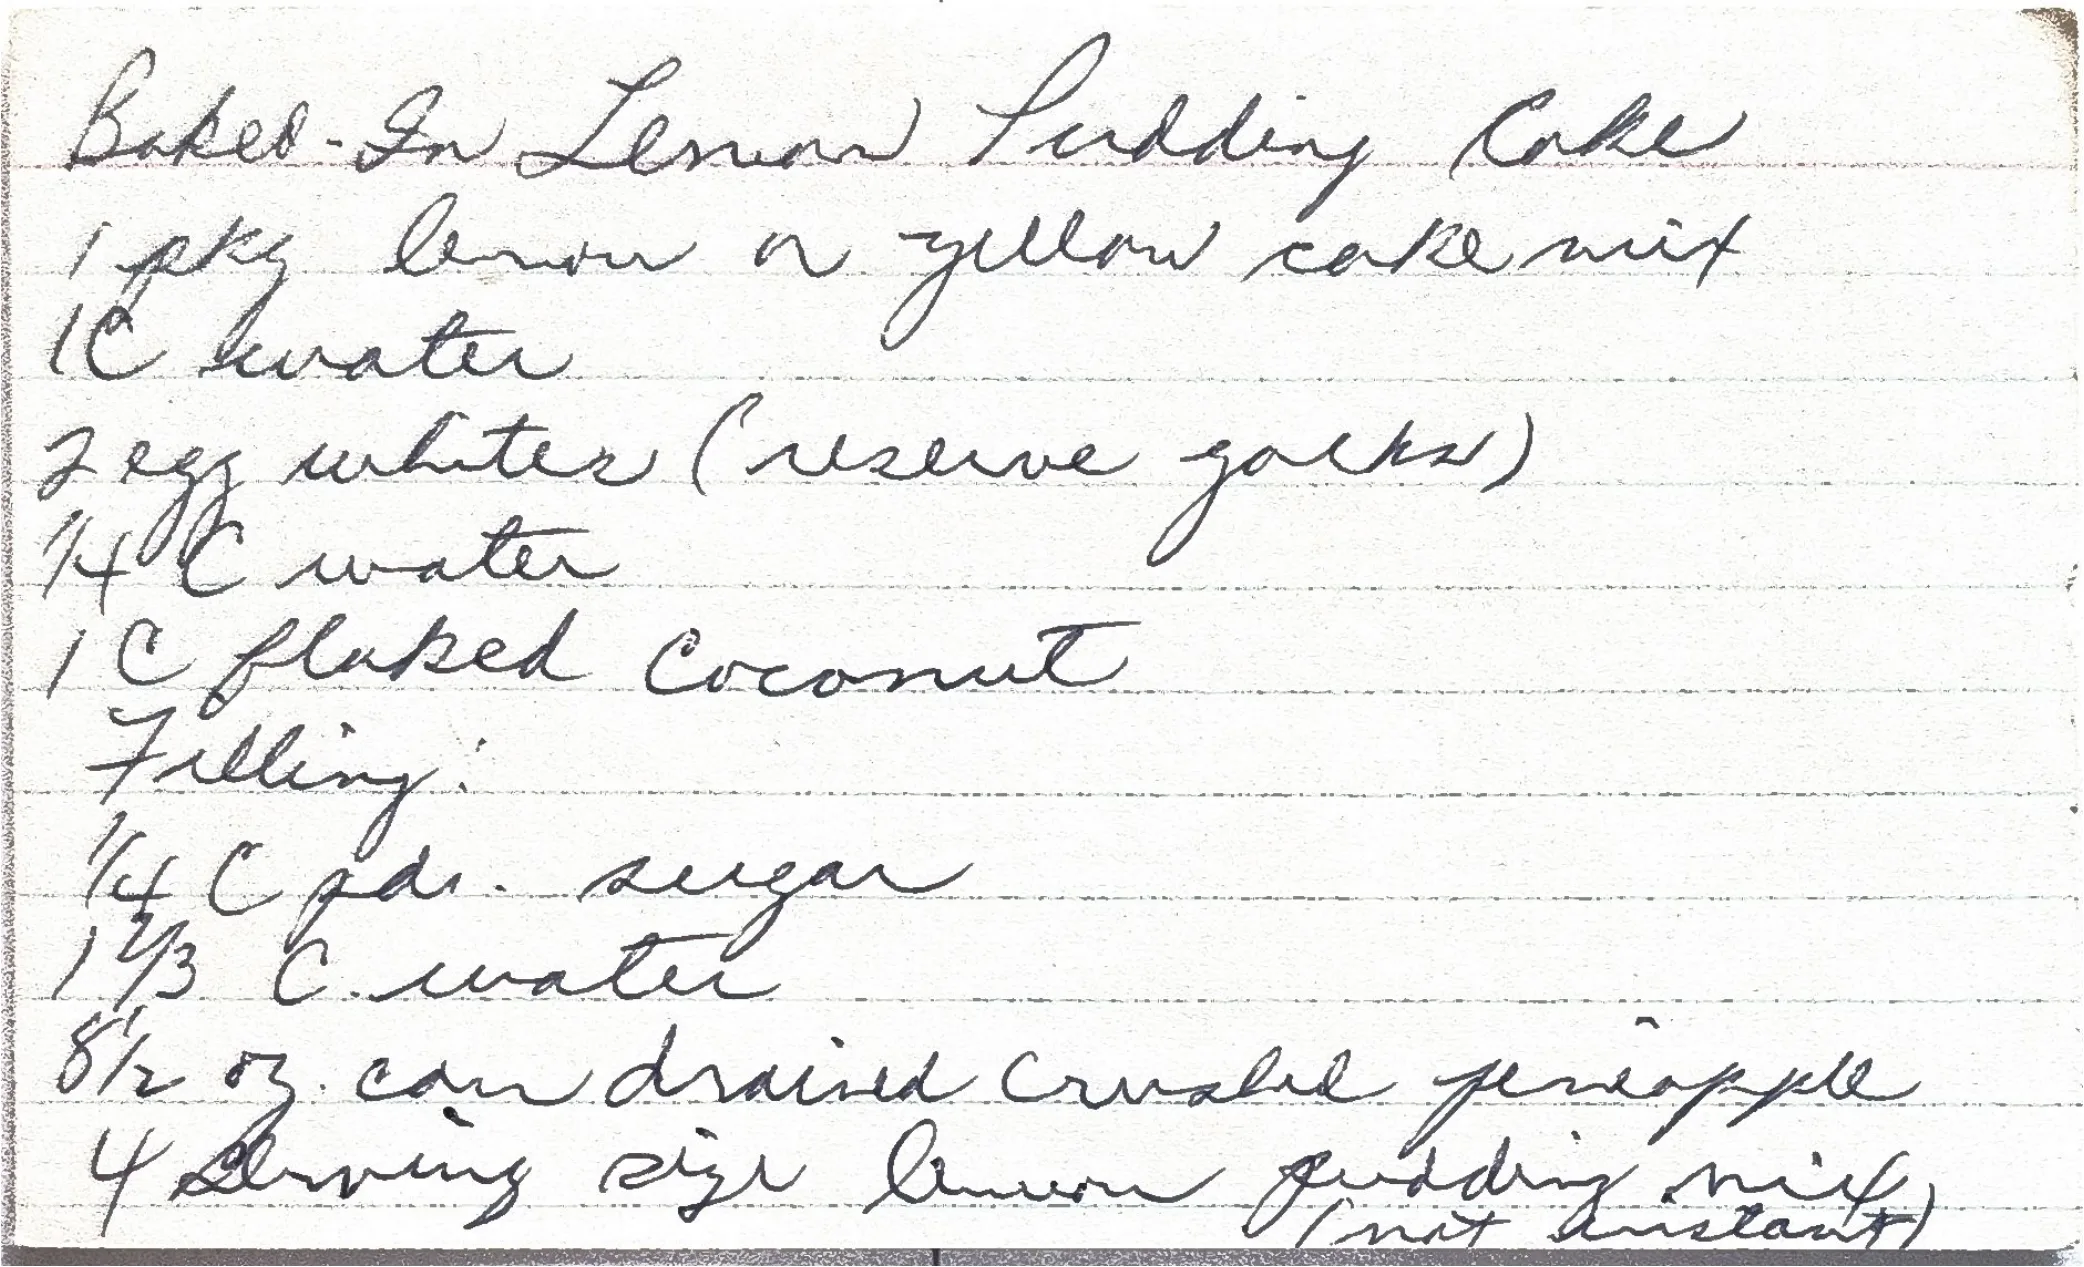 Baked-In Lemon Pudding Cake
1 pkg lemon or yellow cake mix
1C water
2 egg whites (reserve yolks)
1/4 C water
1 C flaked Coconut
Filling:
1/4 C pdr. sugar
1 2/3 C. water
8 1/2 oz. can drained crushed pineapple
4 serving size lemon pudding mix
(not instant)